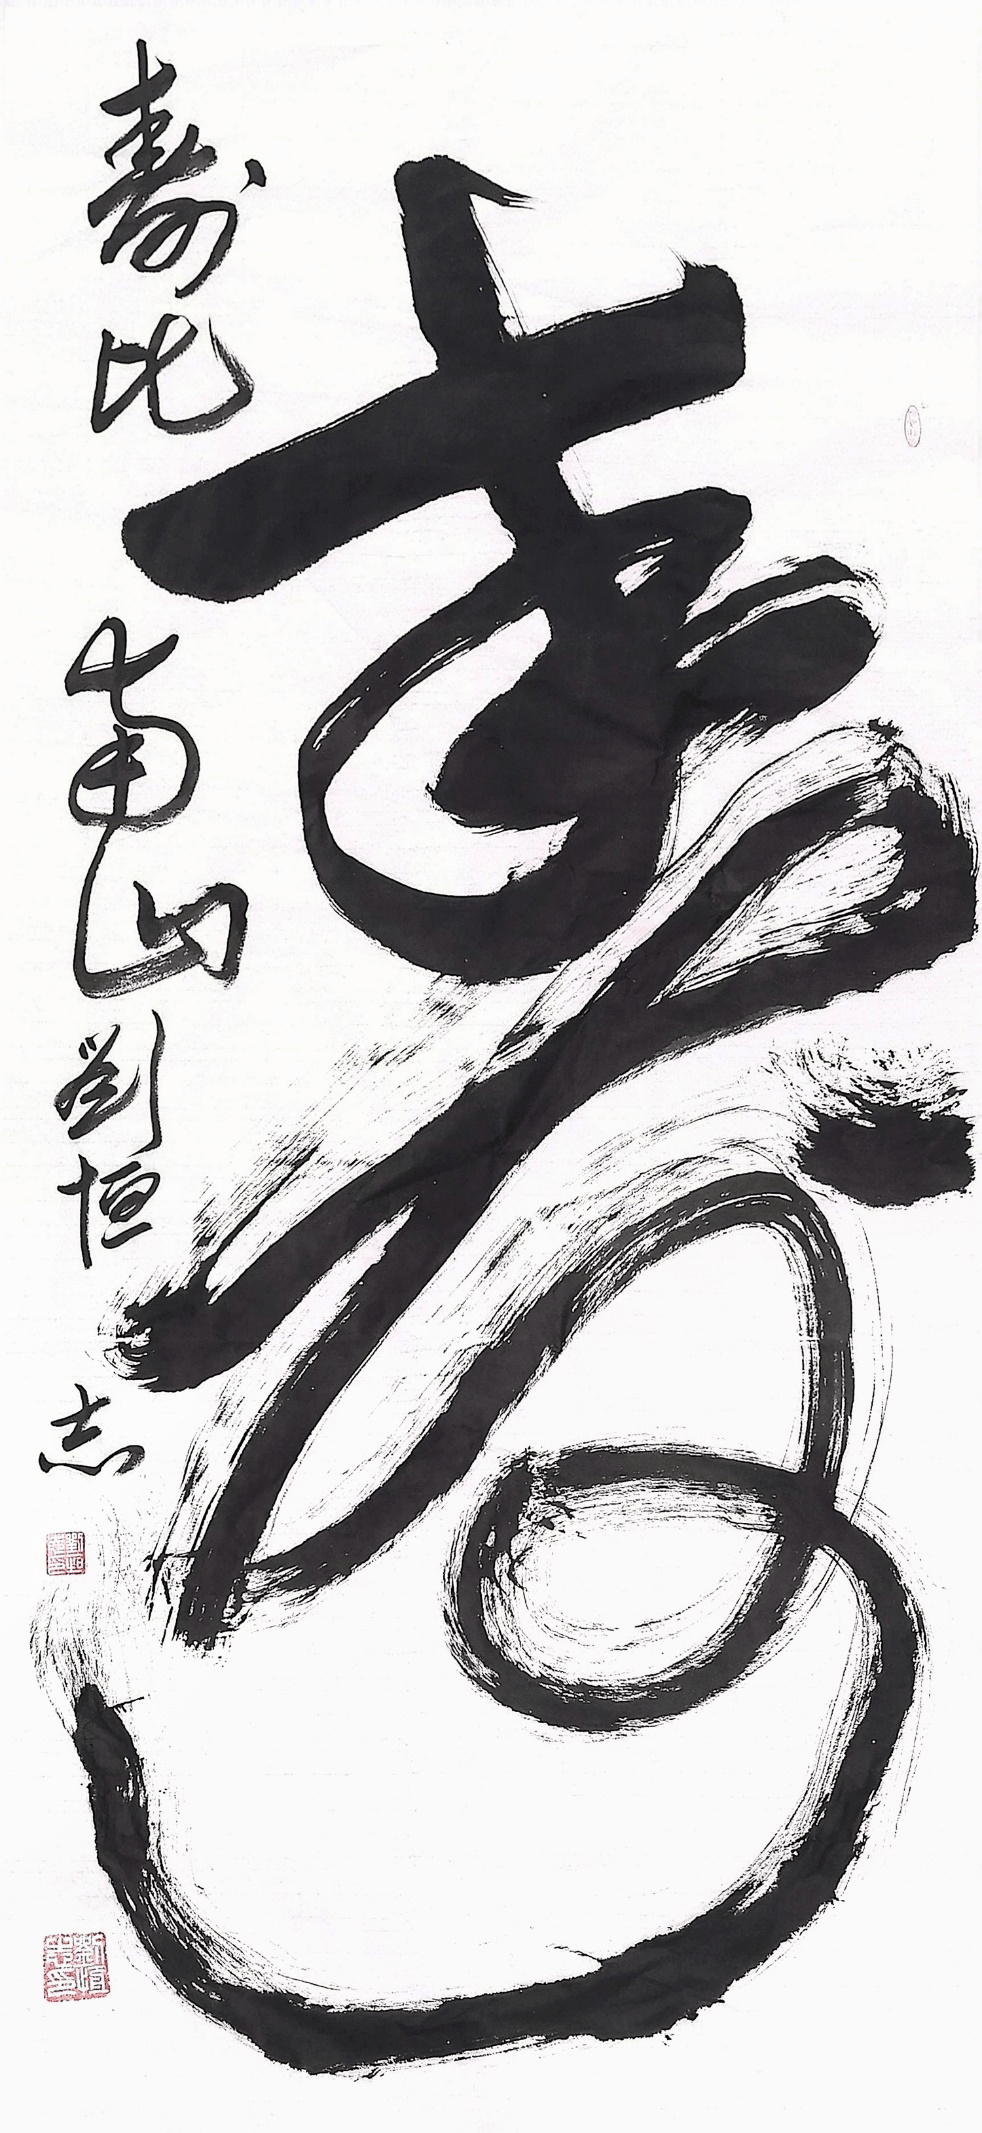 壽
壽比南山劉恒志